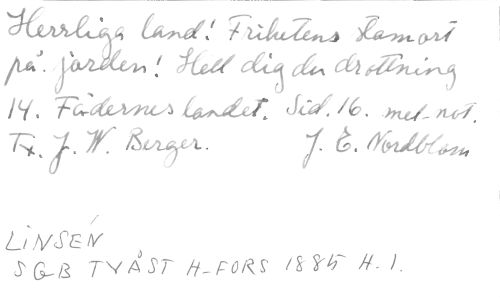 Herrliga land! Frihetens stamort
på jorden! Hell dig du drottning
14. Fädernes landet. Sid. 16. mel-not.
Tx. J. W. Berger. J. E. Nordblom
LINSÉN
SGB TVÅST H-FORS 1885 H. I.